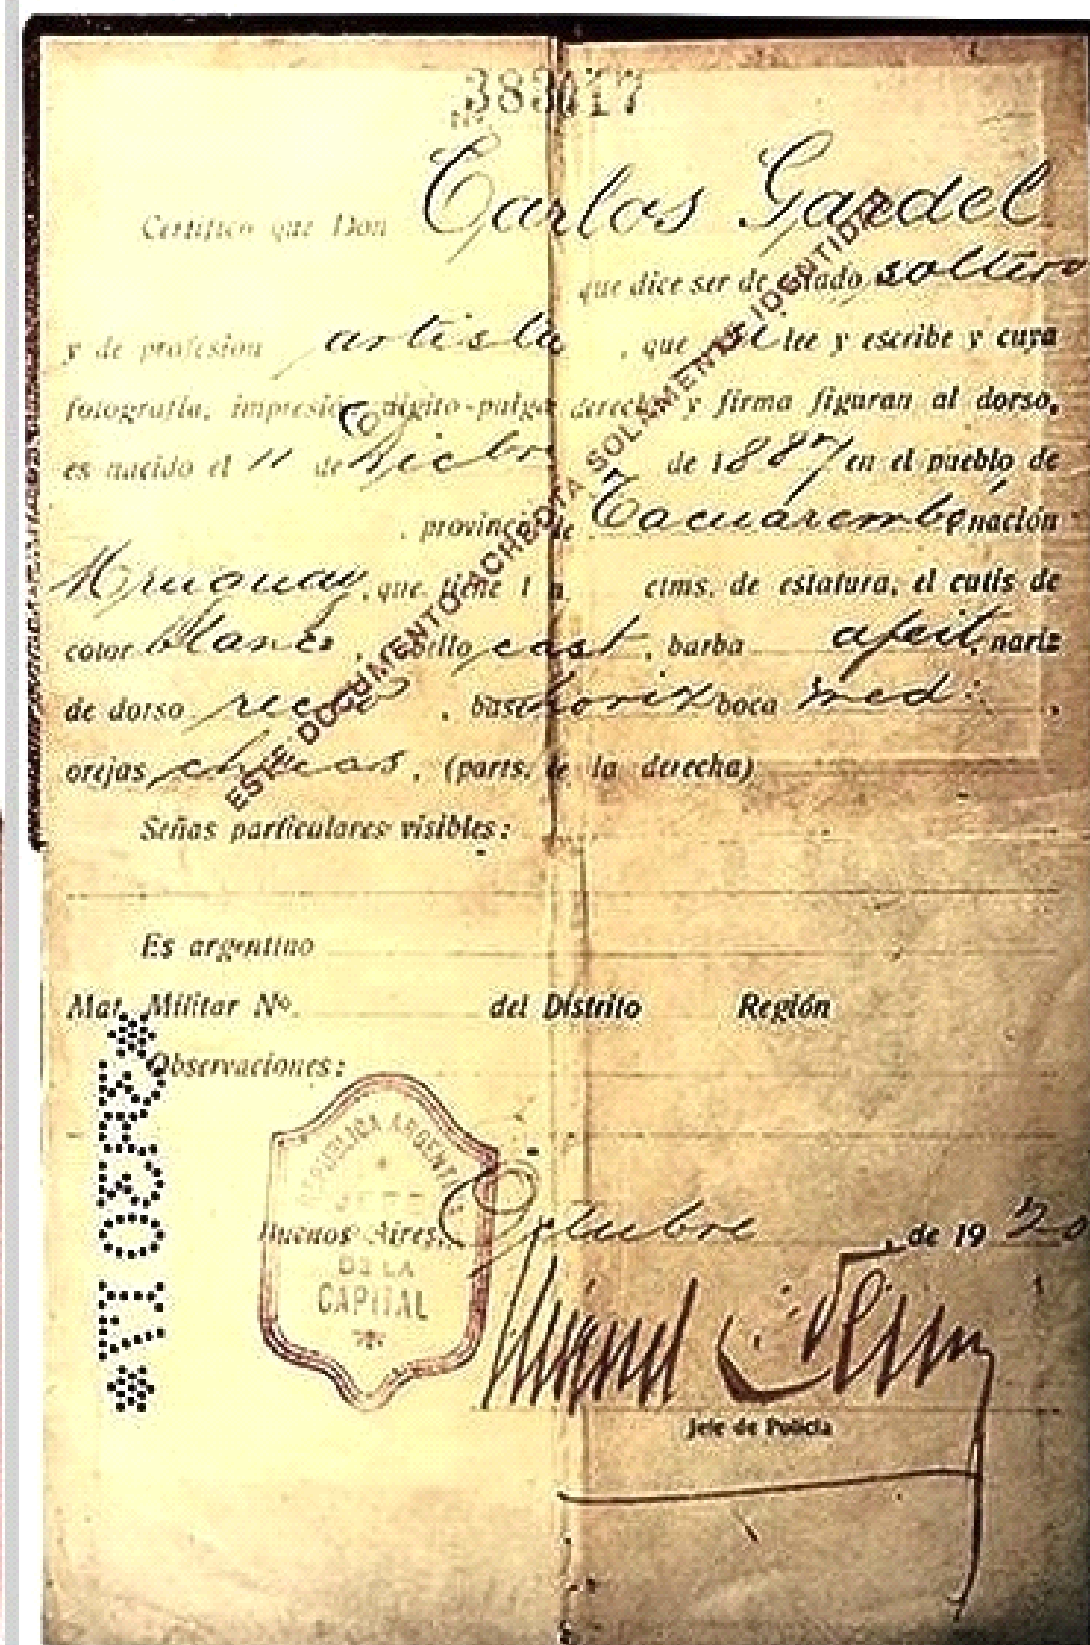 383017
Certifico que Don Carlos Gardel
que dice ser de estado soltero
y de profesión artista, que si lee y escribe y cuya
fotografía, impresión dígito-pulgar derecho y firma figuran al dorso,
es nacido el 11 de Dicbre de 1887 en el pueblo de
, provincia de Tacuarembó nación
Uruguay, que tiene 1 m ctms. de estatura, el cutis de
color blanco, cabello cast, barba afeit, nariz
de dorso recto, base horiz boca med:,
orejas chicas, (parts. de la derecha)
Señas particulares visibles:
Es argentino
Mat. Militar Nº. del Distrito Región
Observaciones:
Buenos Aires, Octubre, de 1920
Jefe de Policía
ESTE DOCUMENTO ACREDITA SOLAMENTE IDENTIDAD
REPUBLICA ARGENTINA
JEFE
DE LA
CAPITAL